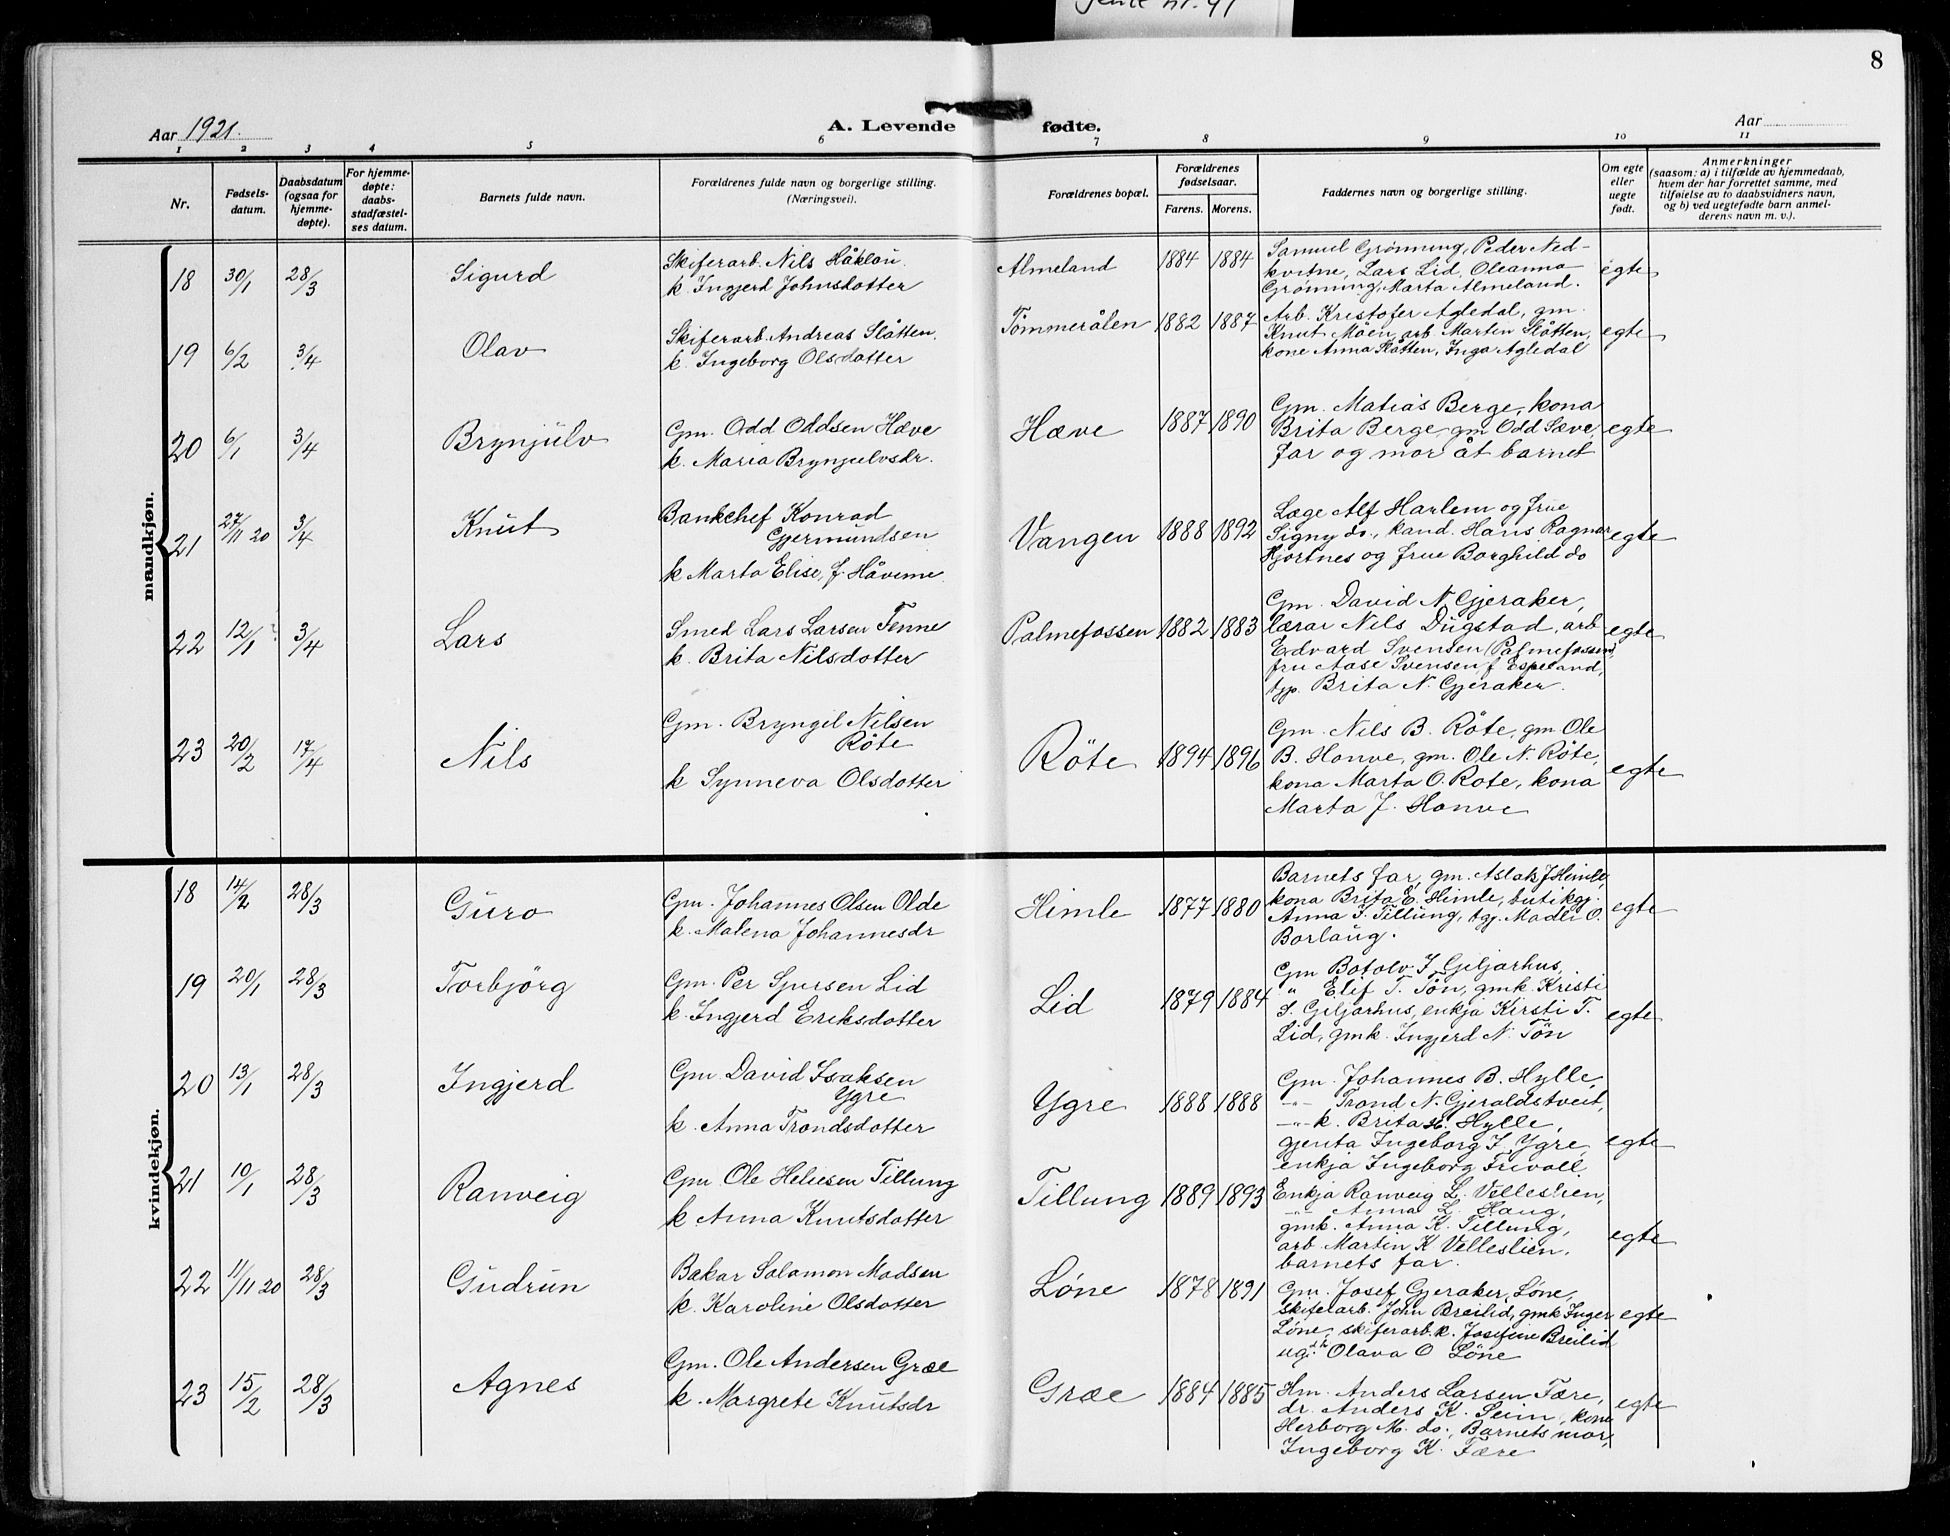 8
Aar 1921.
A. Levende fødte.
Aar
1 2 3 4 5 6 7 8 9 10 11
Nr.
Fødsels-
datum.
Daabsdatum
(ogsaa for
hjemme-
døpte).
For hjemme-
døpte:
daabs-
stadfæstel-
ses datum.
Barnets fulde navn.
Forældrenes fulde navn og borgerlige stilling.
(Næringsvei).
Forældrenes bopæl.
Forældrenes
fødselsaar.
Farens. Morens.
Faddernes navn og borgerlige stilling.
Om egte
eller
uegte
født.
Anmerkninger
(saasom: a) i tilfælde av hjemmedaab,
hvem der har forrettet samme, med
tilføielse av to daabsvidners navn,
og b) ved uegtefødte barn anmel-
derens navn m. v.).
mandkjøn.
18 30/1 28/3 Sigurd
Skiferarb. Nils Håklau.
k. Ingjerd Johnsdotter
Almeland 1884 1884
Samuel Grønning, Peder Ned-
kvitne, Lars Lid, Oleanna
Grønning, Marta Almeland.
egte
19 6/2 3/4 Olav
Skiferarb. Andreas Slåtten,
k. Ingeborg Olsdotter
Tømmerålen 1882 1887
Arb. Kristofer Agledal, gm.
Knut Möen, arb. Martin Slåtten,
kone Anna Slåtten, Inga Agledal
egte
20 6/1 3/4 Brynjulv
Gm. Odd Oddsen Hæve
k. Maria Brynjulvsdr.
Hæve 1887 1890
Gm. Matias Berge, kona
Brita Berge, gm Odd Sæve,
far og mor åt barnet
egte
21 27/11 20 3/4 Knut
Bankchef Konrad
Gjermundsen
k Marta Elise, f. Håveme
Vangen 1888 1892
Læge Alf Harlem og frue
Signy do., kand. Hans Ragnar
Hjortnes og frue Borghild do
egte
22 12/1 3/4 Lars
Smed Lars Larsen Tenne
k. Brita Nilsdotter
Palmefossen 1882 1883
Gm. David N. Gjeraker,
lærar Nils Dugstad, arb
Edvard Svensen (Palmefossen),
fru Aase Svensen, f Espeland,
tgp. Brita N. Gjeraker.
egte
23 20/2 17/4 Nils
Gm. Bryngel Nilsen
Röte
k Synneva Olsdotter
Röte 1894 1896
Gm. Nils B. Röte, gm Ole
B. Honve, gm. Ole N. Röte,
kona Marta O. Rote, kona
Marta J. Honve
egte
kvindekjøn.
18 14/2 28/3 Guro
Gm. Johannes Olsen Olde
k. Malena Johannesdr
Himle 1877 1880
Barnets far, gm. Aslak J Himle,
kona Brita E. Himle, butikgj.
Anna J. Tillung, tgj. Madli O.
Borlaug.
egte
19 20/1 28/3 Torbjörg
Gm. Per Sjursen Lid
k. Ingjerd Eriksdotter
Lid 1879 1884
Gm Botolv J Giljarhus,
" Elif T. Tön, gmk Kristi
S. Giljarhus, enkja Kirsti T.
Lid, gmk. Ingjerd N. Tön
egte
20 13/1 28/3 Ingjerd
Gm. David Isaksen
Ygre
k. Anna Trondsdotter
Ygre 1888 1888
Gm. Johannes B. Hylle,
-"- Trond N. Gjeraldstveit,
-"- k. Brita H. Hylle,
gjenta Ingeborg I. Ygre,
enkja Ingeborg Trivoll
egte
21 10/1 28/3 Ranveig
Gm Ole Heliesen Tillung
k Anna Knutsdotter
Tillung 1889 1893
Enkja Ranveig L. Velleslien,
-"- Anna L. Haug,
gmk. Anna K. Tillung,
arb Martin K Velleslien.
barnets far.
egte
22 11/11 20 28/3 Gudrun
Bakar Salamon Madsen
k. Karoline Olsdotter
Løne 1878 1891
Gm. Josef Gjeraker, Løne,
skiferarb. John Breilid, gmk Inger
Løne, skiferarb. k. Josefine Breilid
Olava O Løne
egte
23 15/2 28/3 Agnes
Gm. Ole Andersen Græe
k. Margrete Knutsdr
Græe 1884 1885
Hm. Anders Larsen Fære,
dr. Anders K. Seim, kone
Herborg M. do., Barnets mor,
Ingeborg K. Fære
egte